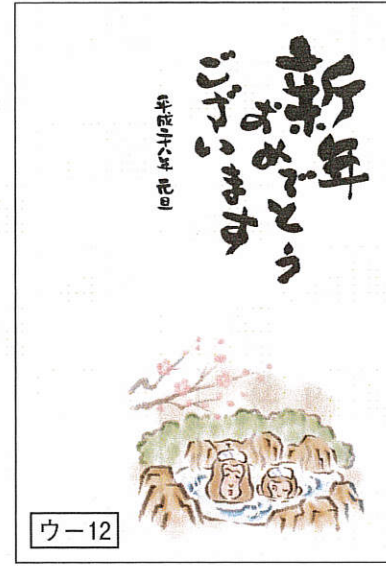 新年
おめでとう
ございます
平成二十八年 元旦
ウー12